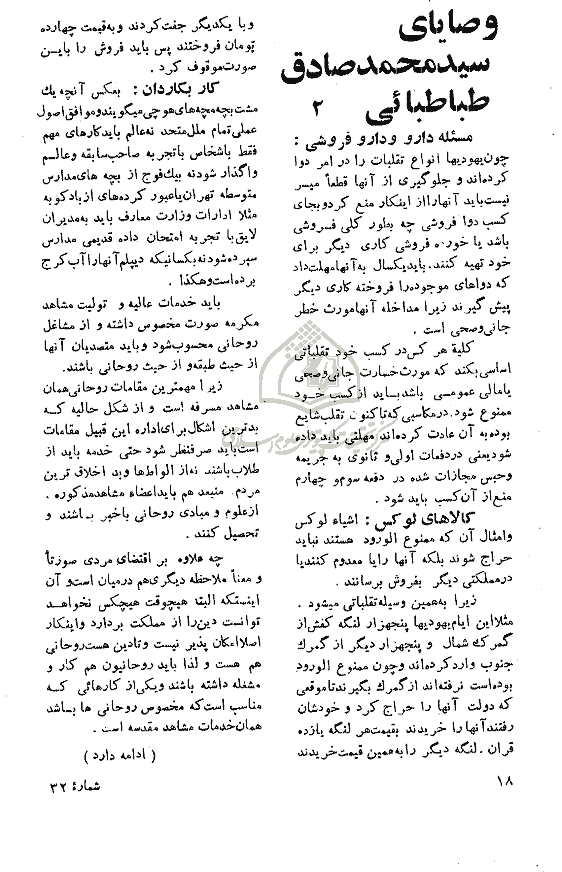 وصایای
سیدمحمدصادق
طباطبائی ۲
مسئله دارو ودارو فروشی :
چون یهودیها انواع تقلبات را در امر دوا
کرده‌اند و جلوگیری از آنها قطعاً میسر
نیست باید آنهارا از اینکار منع کرد و بجای
کسب دوا فروشی چه بطور کلی فروشی
باشد یا خورده فروشی کاری دیگر برای
خود تهیه کنند. باید یکسال به آنها مهلت داد
که دواهای موجوده را فروخته کاری دیگر
پیش گیرند زیرا مداخله آنها مورث خطر
جانی وصحی است .
کلیهٔ هر کس در کسب خود تقلباتی
اساسی بکند که مورث خسارت جانی وصحی
یامالی عمومی باشد بساید از کسب خود
ممنوع شود. درمکاسبی که تا کنون تقلب شایع
بوده به آن عادت کرده‌اند مهلتی باید داده
شود یعنی در دفعات اولی و ثانوی به جریمه
وحبس مجازات شده در دفعه سوم و چهارم
منع از آن کسب باید شود .
کالاهای لوکس : اشیاء لوکس
وامثال آن که ممنوع الورود هستند نباید
حراج شوند بلکه آنها رایا معدوم کنند یا
درمملکتی دیگر بفروش برسانند .
زیرا به‌همین وسیله تقلباتی میشود .
مثلا این ایام یهودیها پنجهزار لنگه کفش از
گمرك شمال و پنجهزار دیگر از گمرك
جنوب وارد کرده‌اند و چون ممنوع الورود
بوده‌است نرفته‌اند از گمرك بگیرند تا موقعی
که دولت آنها را حراج کرد و خودشان
رفتند آنها را خریدند بقیمت هر لنگه یازده
قران . لنگه دیگر را به‌همین قیمت خریدند
و با یکدیگر جفت کردند و به قیمت چهارده
تومان فروختند پس باید فروش را باین
صورت موقوف کرد .
کار بکاردان : بعکس آنچه یك
مشت بچه مچه‌های هوچی میگویند و موافق اصول
عملی تمام ملل متحد نه عالم باید کارهای مهم
فقط باشخاص با تجربه صاحب سابقه و عالم
واگذار شود نه بیك فوج از بچه های مدارس
متوسطه تهران یا عبور کرده‌های از بادکوبه
مثلا ادارات وزارت معارف باید به مدیران
لایق با تجربه امتحان داده قدیمی مدارس
سپرده شود نه بکسانیکه دیپلم آنها را آب کرج
برده است و هکذا .
باید خدمات عالیه و تولیت مشاهد
مکرمه صورت مخصوص داشته و از مشاغل
روحانی محسوب شود و باید متصدیان آنها
از حیث طبقه و از حیث روحانی باشند.
زیرا مهمترین مقامات روحانی همان
مشاهد مسرفه است و از شکل حالیه که
بدترین اشکال برای اداره این قبیل مقامات
است باید صرفنظر شود حتی خدمه باید از
طلاب باشند نه از الواط ها و بد اخلاق ترین
مردم. منبعد هم باید اعضاء مشاهد مذکوره .
از علوم و مبادی روحانی باخبر باشند و
تحصیل کنند .
چه علاوه بر اقتضای مردی صورتاً
و معناً ملاحظه دیگری هم درمیان است و آن
اینستکه البته هیچوقت هیچکس نخواهد
توانست دین را از مملکت بردارد و اینکار
اصلا امکان پذیر نیست و تا دین هست روحانی
هم هست و لذا باید روحانیون هم کار و
مشغله داشته باشند و یکی از کارهائی که
مناسب است که مخصوص روحانی ها باشد
همان خدمات مشاهد مقدسه است .
( ادامه دارد )
۱۸
شمارهٔ ۳۲